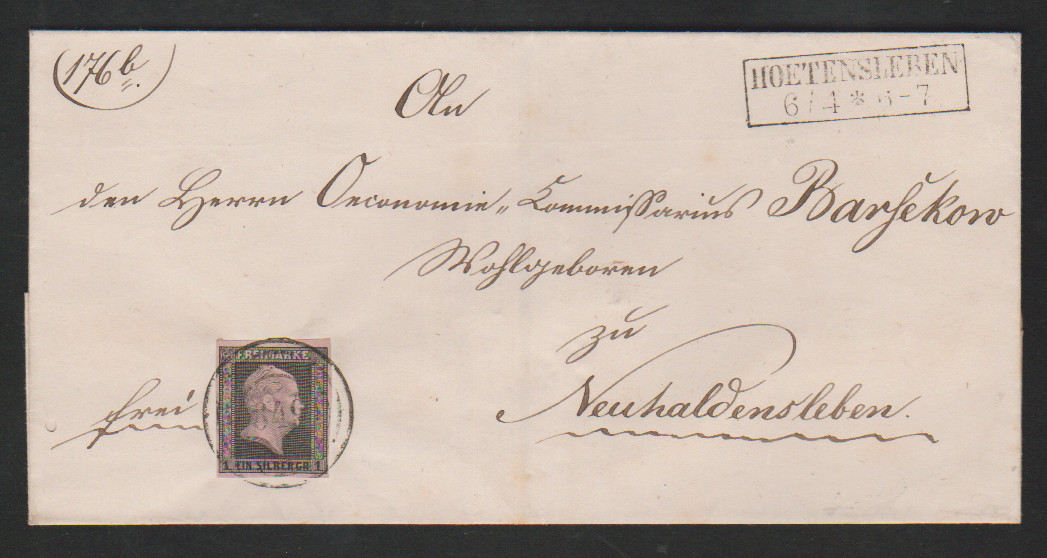 (176b.
HOETENSLEBEN
6/4 * 6-7
An
den Herrn Oeconomie-Commissarius Barsekow
Wohlgeboren
zu
Neuhaldensleben.
frei
FREIMARKE
1. EIN SILBERGR. 1